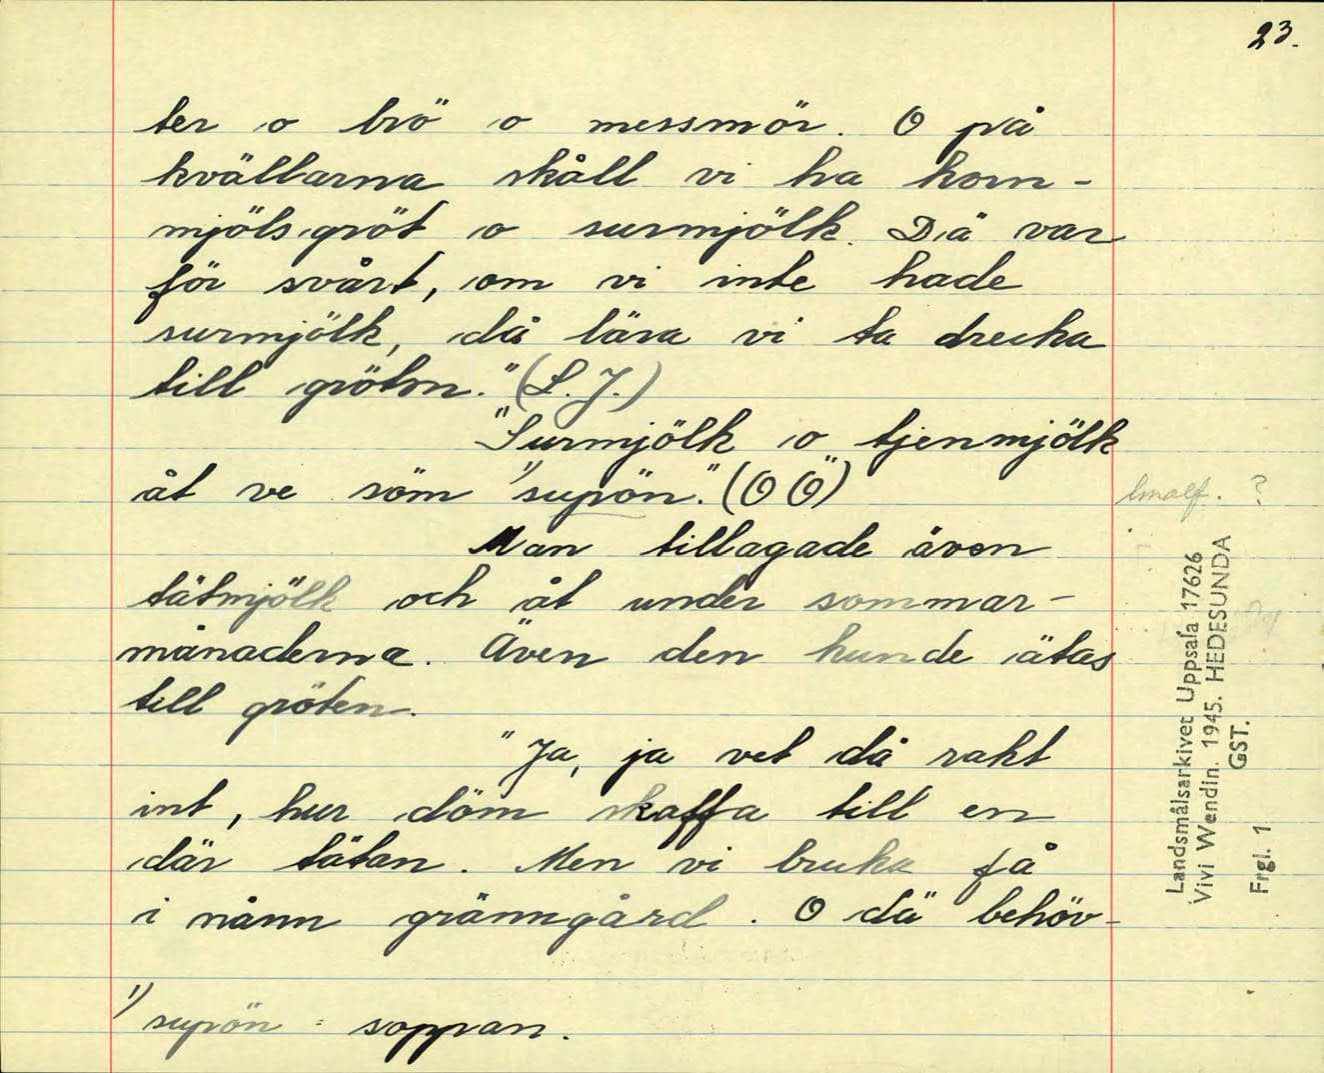 23.
ter o brö o messmör. O på
kvällarna skåll vi ha korn-
mjölsgröt o surmjölk. Dä var
för svårt, om vi inte hade
surmjölk, då lära vi ta dricka
till gröten." (L. J.)
"Surmjölk o tjenmjölk
åt ve söm ¹⁾supön." (O Ö)
Man tillagade även
tätmjölk och åt under sommar-
månaderna. Även den kunde ätas
till gröten.
"Ja, ja vet då rakt
int, hur döm skaffa till en
där tätan. Men vi bruka få
i nånn gränngård. O dä behöv-
¹⁾ supön = soppan.
?
Landsmålsarkivet Uppsala 17626
Vivi Wendin. 1945. HEDESUNDA
GST.
Frgl. 1